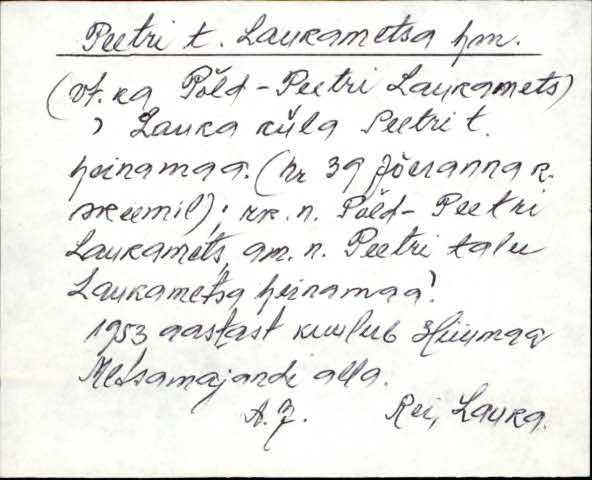 Peetri t. Laukametsa hm.
(vt. ka Põld-Peetri Laukamets)
› Lauka küla Peetri t.
heinamaa. (nr 39 Jõeranna k.
skeemil); rk. n. Põld-Peetri
Laukamets, am. n. Peetri talu
Laukametsa heinamaa›.
1953 aastast kuulub Hiiumaa
Metsamajandi alla.
A. J. Rei, Lauka.